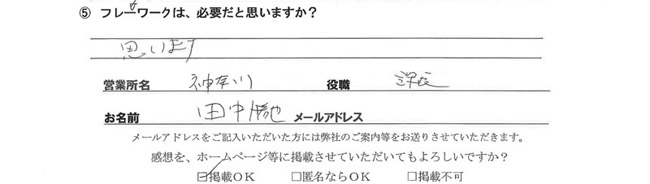 ⑤ フレームワークは、必要だと思いますか？
思います
営業所名 神奈川 役職 課長
お名前 田中勝也 メールアドレス
メールアドレスをご記入いただいた方には弊社のご案内等をお送りさせていただきます。
感想を、ホームページ等に掲載させていただいてもよろしいですか？
☑掲載OK □匿名ならOK □掲載不可